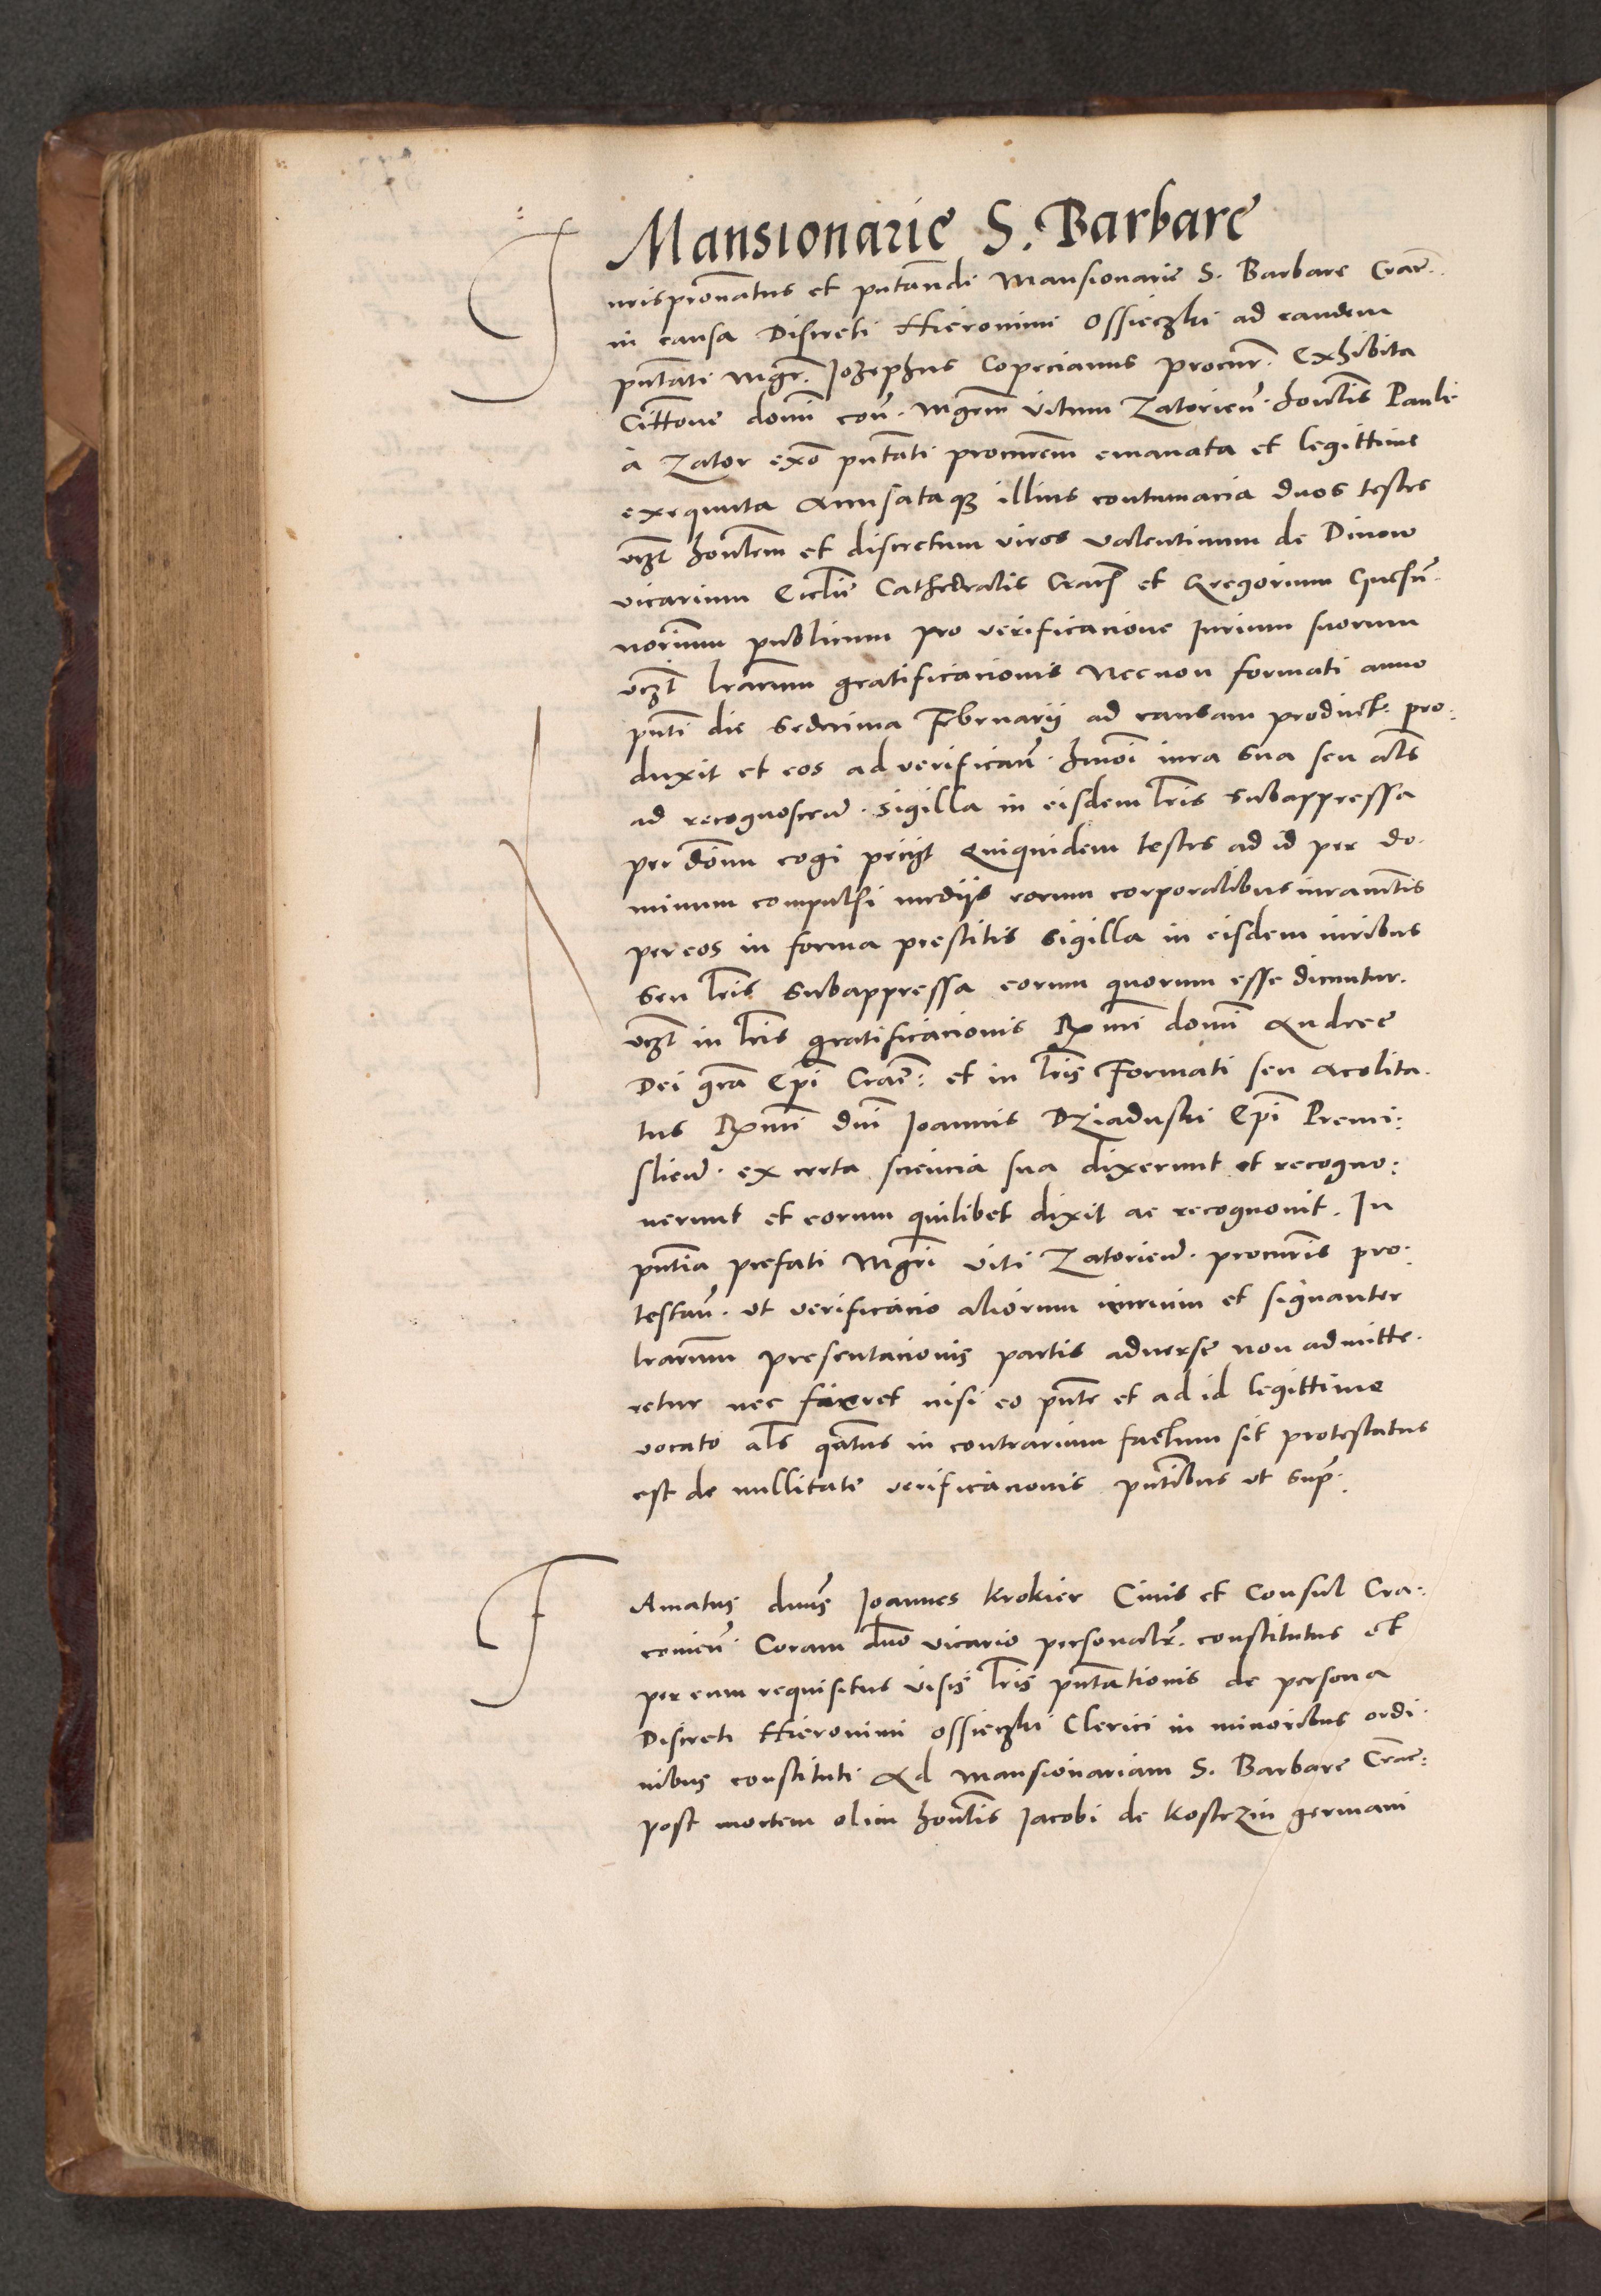 Mansionarie S. Barbare
Jurispronatus et pntandi Mansionarie S. Barbare Crac.
in causa Discreti Hieronimi Ossieczki ad eandem
pntati Mgr. Jozephus Copecianus procur. Exhibita
Cittone domi con. Mgrm Vitum Zatorien. honlis Pauli
à Zator exo pntati procurem emanata et legittime
exequuta Accusataque illius contumacia duos testes
vczt honlem et discretum viros Valentinum de Dinow
vicarium Ecclie Cathedralis Crac et Gregorium
norium publicum pro verificacione Jurium suorum
vczt lrarum gratificacionis Necnon formati anno
pnti die Sedecima Februarij ad causam product. pro:
duxit et eos ad verifican. hmoi iura sua seu als
ad recognoscen. sigilla in eisdem lris subappressa
per domn cogi peciyt Quiquidem testes ad id per do.
minum compulsi medijs eorum corporalibus iuramtis
per eos in forma prestitis sigilla in eisdem iuribus
seu lris subappressa eorum quorum esse dicuntur.
vczt in lris gratificacionis Rmi domi Andree
Dei gra Epi Crac: et in lris Formati seu Acolita.
tus Rmi dni Joannis Dziaduski Epi Premi:
slien. ex certa sciencia sua dixerunt et recogno:
uerunt et eorum quilibet dixit ac recognouit. In
pntia prefati Mgri Viti Zatorien. procuris pro.
testan. vt verificacio aliorum iurium et signanter
lrarum presentacionis partis aduerse non admitte.
retur nec fieret nisi eo pnte et ad id legittime
vocato als qatus in contrarium factum sit protestatus
est de nullitate verificacionis pntibus vt sup.
FAmatus dnus Joannes Krokier Ciuis et Consul Cra:
couien. Coram dno vicario personalr. constitutus et
per eum requisitus visis lris pntationis de persona
Discreti Hieronimi Ossieczki Clerici in minoribus ordi.
nibus constituti Ad Mansionariam S. Barbare Crac:
post mortem olim honlis Jacobi de Kostrzin germani